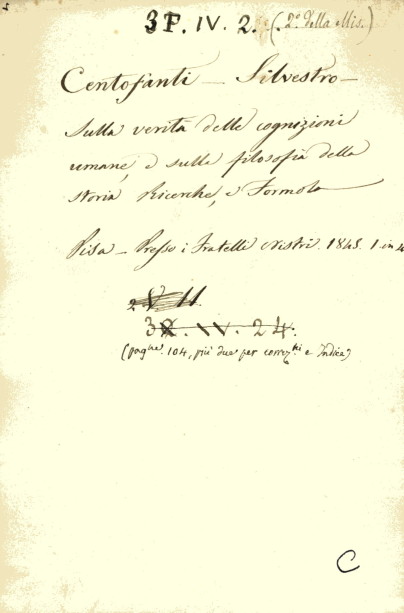 3P. IV. 2. (2.° della Mis.)
Centofanti — Silvestro —
Sulla verità delle cognizioni
umane, e sulla filosofia della
storia Ricerche, e Formola
Pisa — Presso i Fratelli Nistri. 1845. 1 in 4
11.
32. IV. 24.
(pag.ne 104, più due per correz.ni e Indice)
C